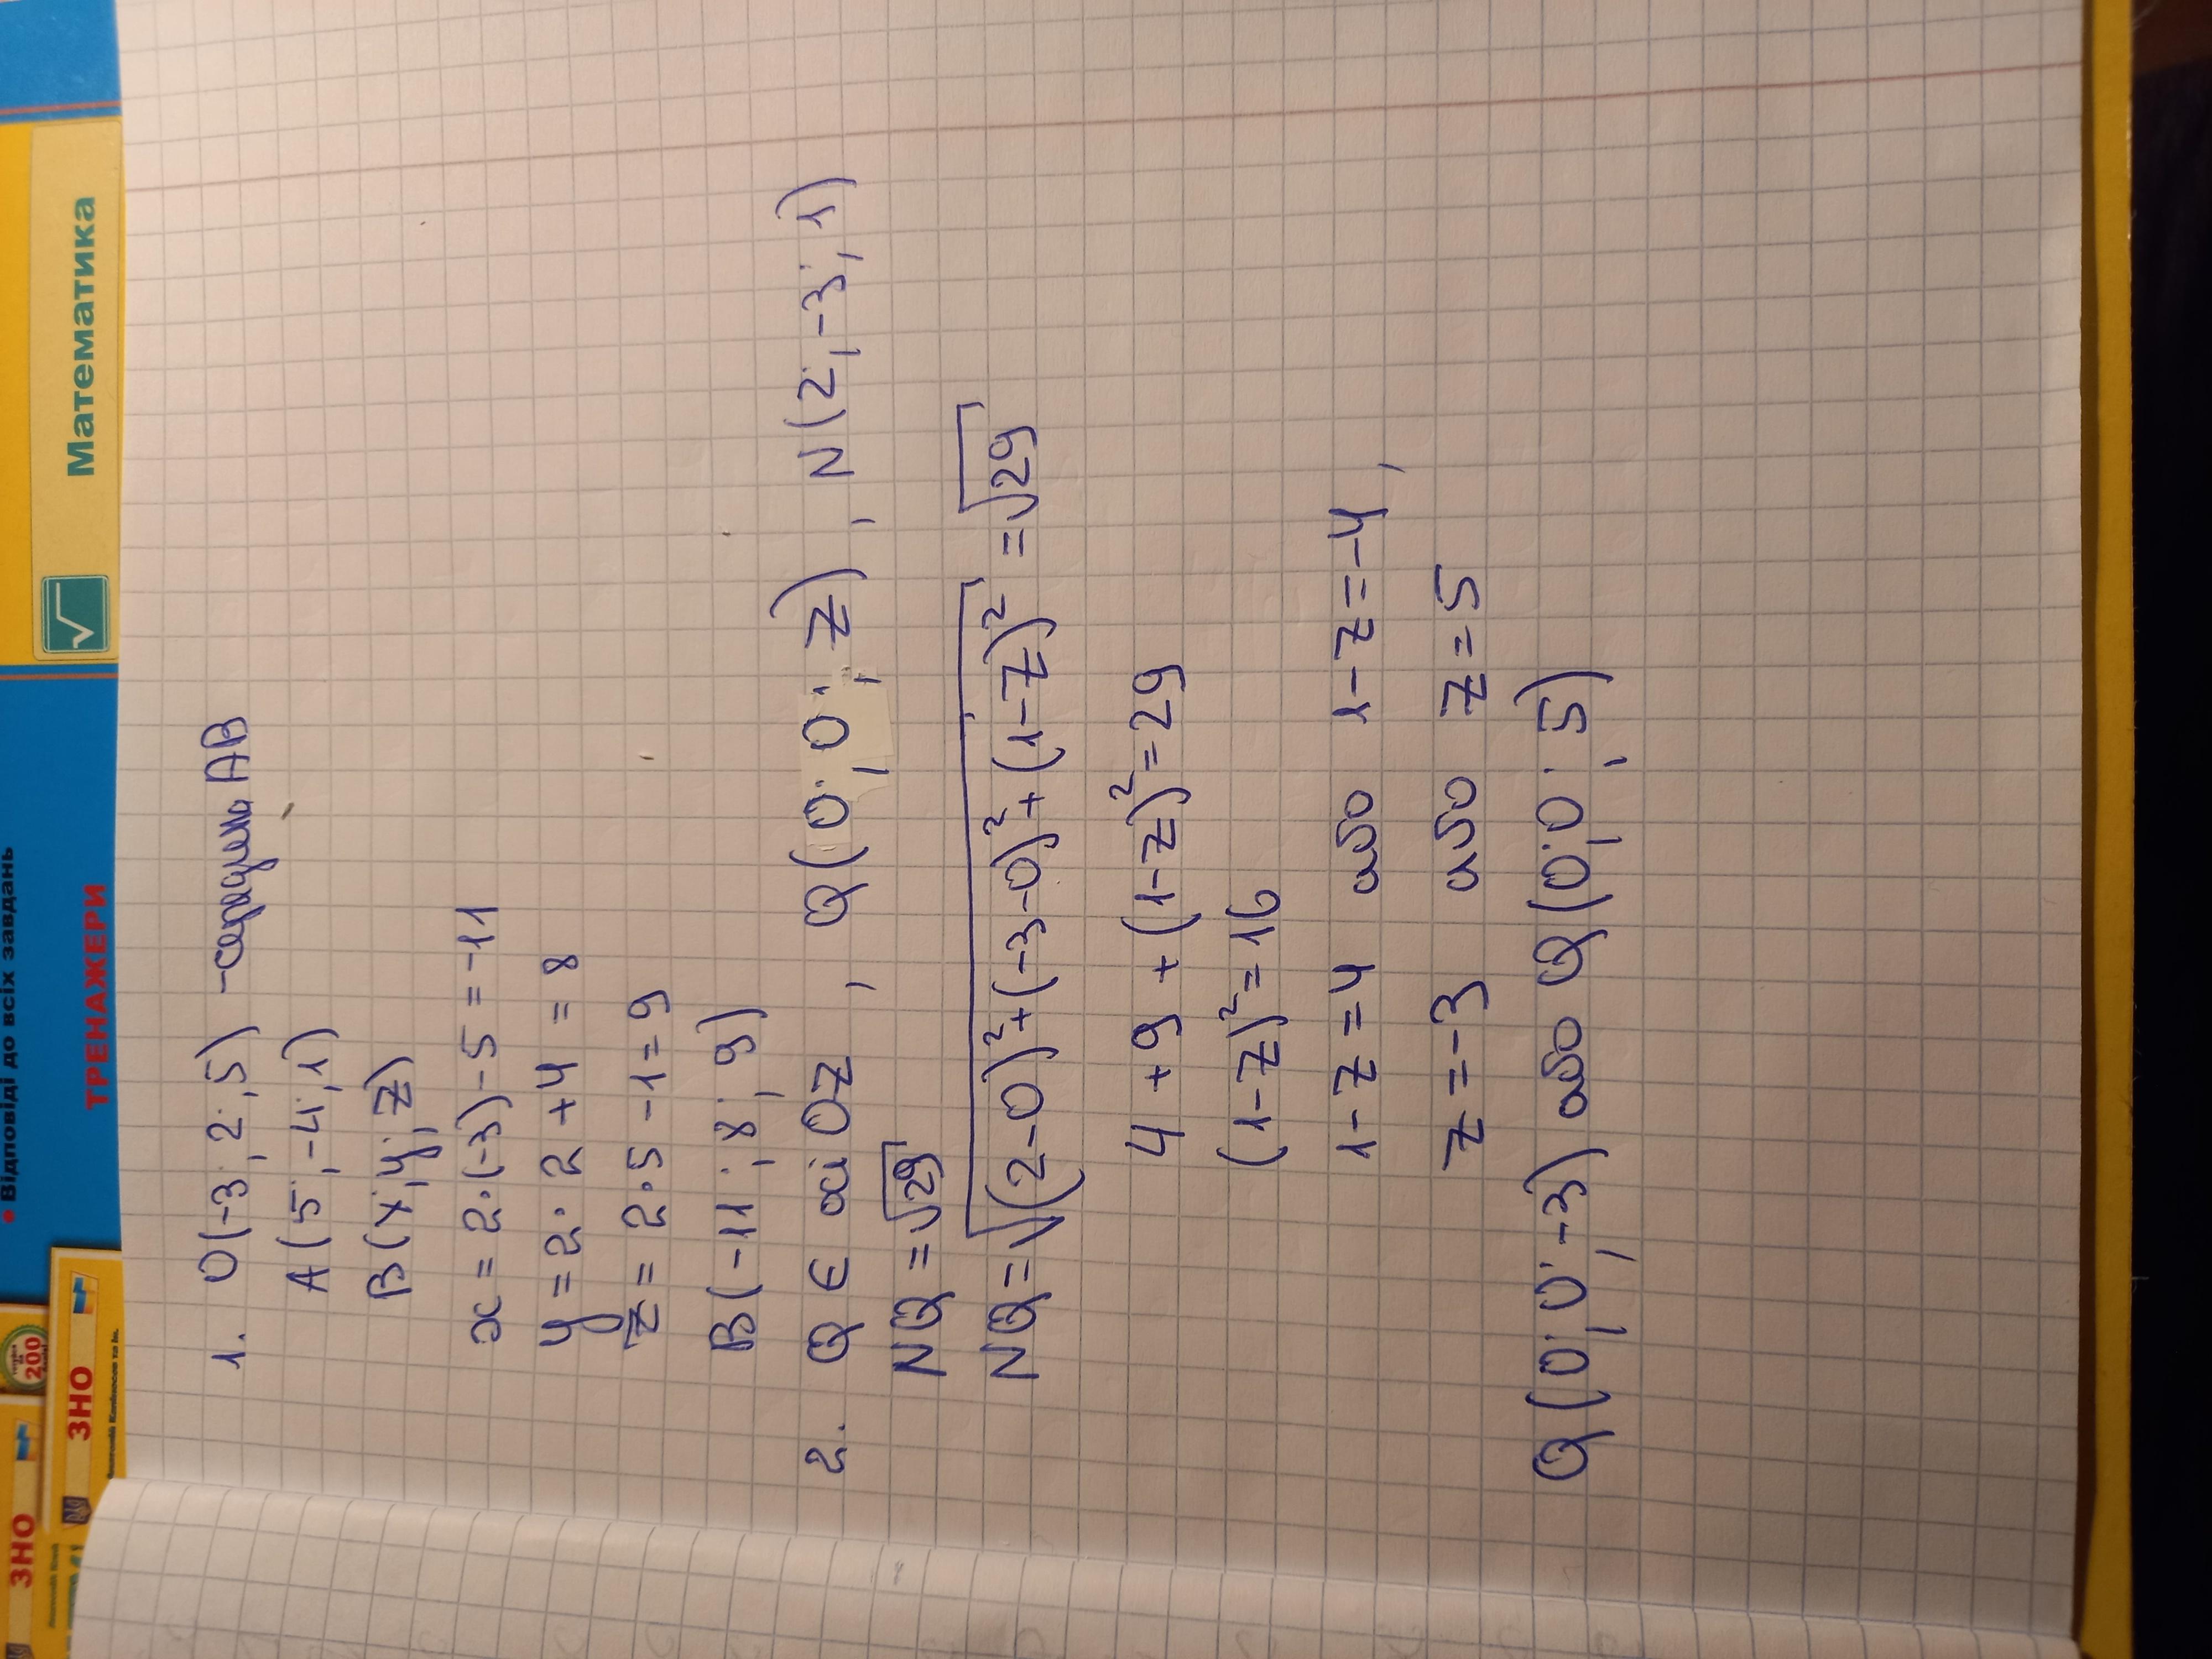 • Відповіді до всіх завдань
ТРЕНАЖЕРИ
Математика
ЗНО
ЗНО
200
1. O(-3; 2; 5) - середина AB
A(5; -4; 1)
B(x; y; z)
x = 2·(-3) - 5 = -11
y = 2·2 + 4 = 8
z = 2·5 - 1 = 9
B(-11; 8; 9)
2. Q ∈ осі OZ, Q(0; 0; z), N(2; -3; 1)
NQ = √29
NQ = √(2-0)² + (-3-0)² + (1-z)² = √29
4 + 9 + (1-z)² = 29
(1-z)² = 16
1 - z = 4 або 1 - z = -4,
z = -3 або z = 5
Q(0; 0; -3) або Q(0; 0; 5)